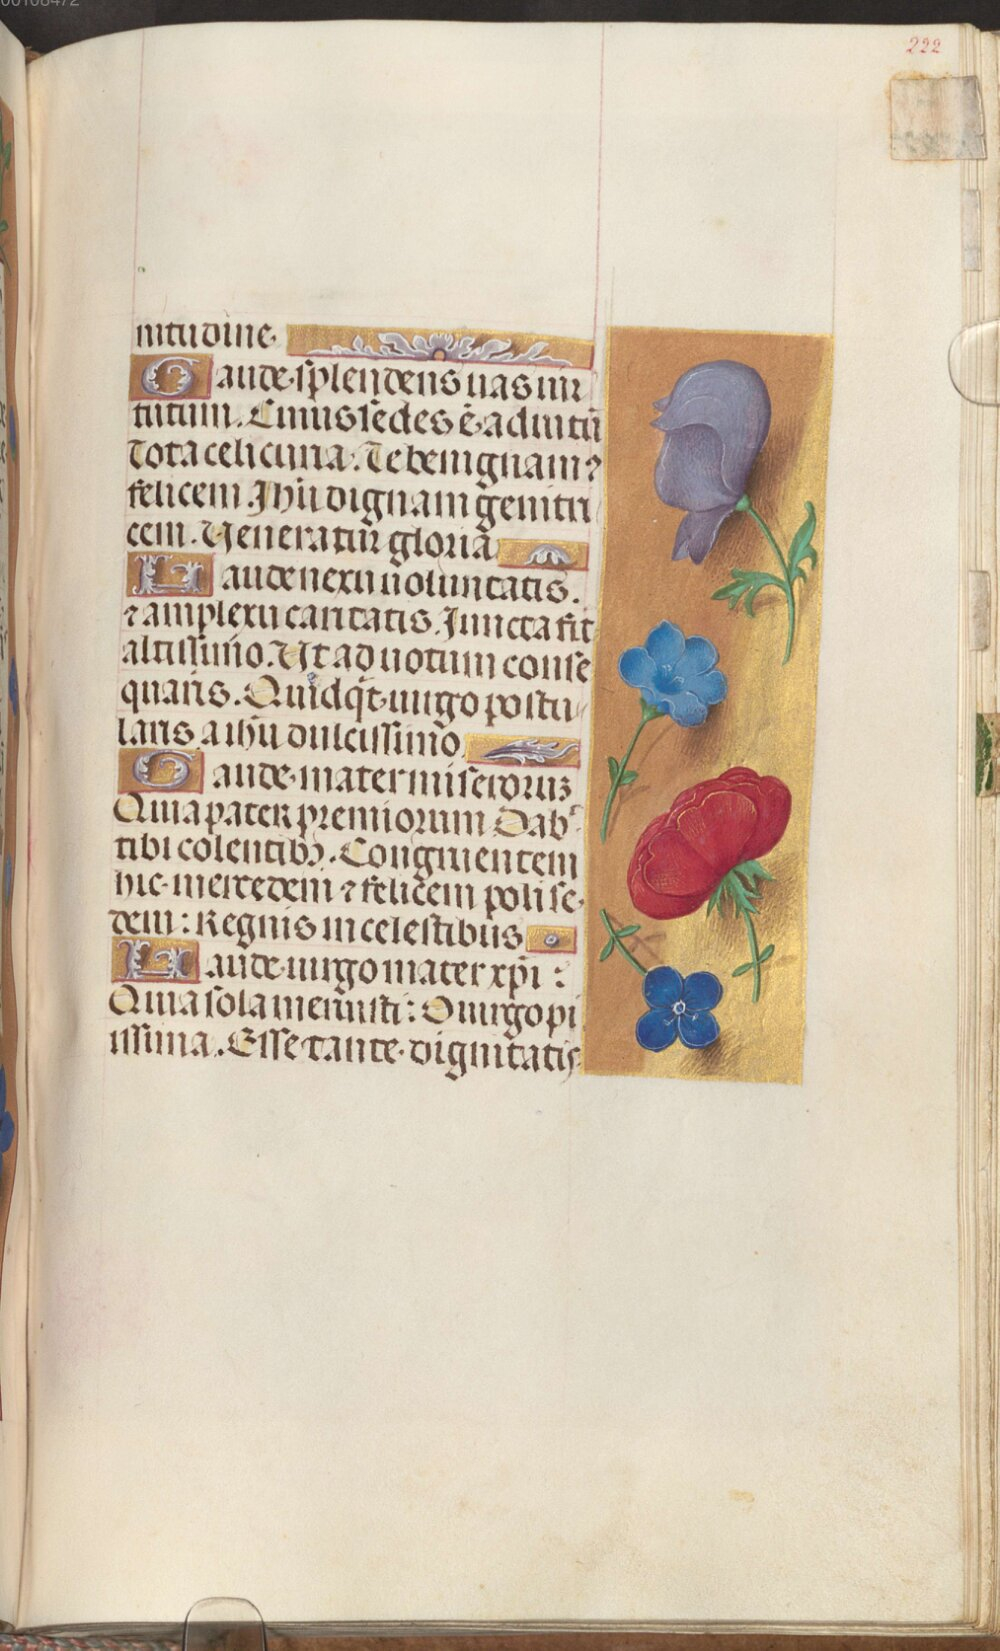 00108472
222
nitudine.
Gaude splendens uas uir
tutum. Cuius sedes ē ad nutū
Tota celi curia. Te benignam ⁊
felicem. Ihū dignam genitri
cem. Ueneratur gloria
Gaude nexu uoluntatis.
⁊ amplexu caritatis. Juncta sic
altissimo. Ut ad uotum conse
quaris. Quidqͥt uirgo postu
laris a ihū dulcissimo
Gaude mater miseroruꝫ
Quia pater premiorum Dabᵗ
tibi colentibꝫ. Congruentem
hic mercedem ⁊ felicem poli se
dem: Regnis in celestibus
Gaude uirgo mater xp̄i:
Quia sola meruisti: O uirgo pi
issima. Esse tante dignitatis